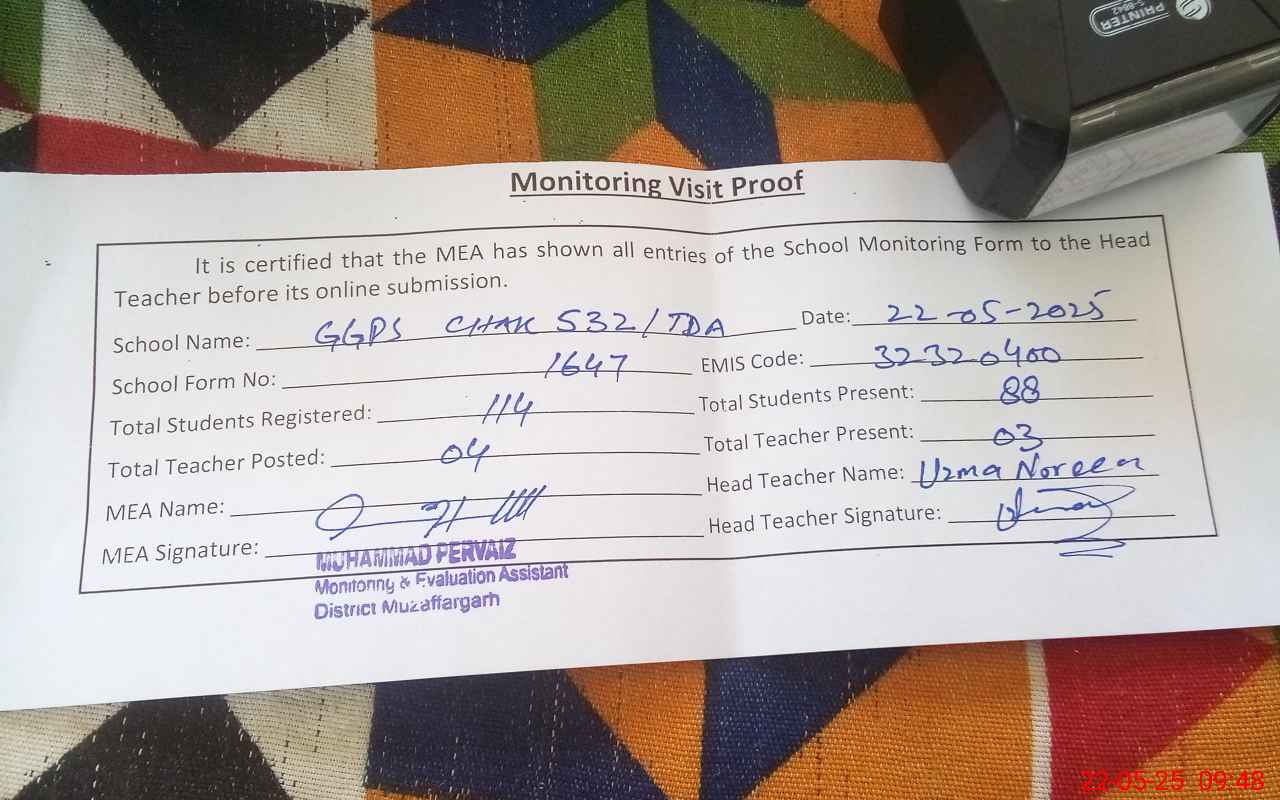 PRINTER
S-8842
Monitoring Visit Proof
It is certified that the MEA has shown all entries of the School Monitoring Form to the Head
Teacher before its online submission.
School Name: GGPS CHAK 532/TDA Date: 22-05-2025
School Form No: 1647 EMIS Code: 32320400
Total Students Registered: 114 Total Students Present: 88
Total Teacher Posted: 04 Total Teacher Present: 03
MEA Name: Head Teacher Name: Uzma Noreen
MEA Signature: Head Teacher Signature:
MUHAMMAD PERVAIZ
Monitoring & Evaluation Assistant
District Muzaffargarh
22-05-25 09:48